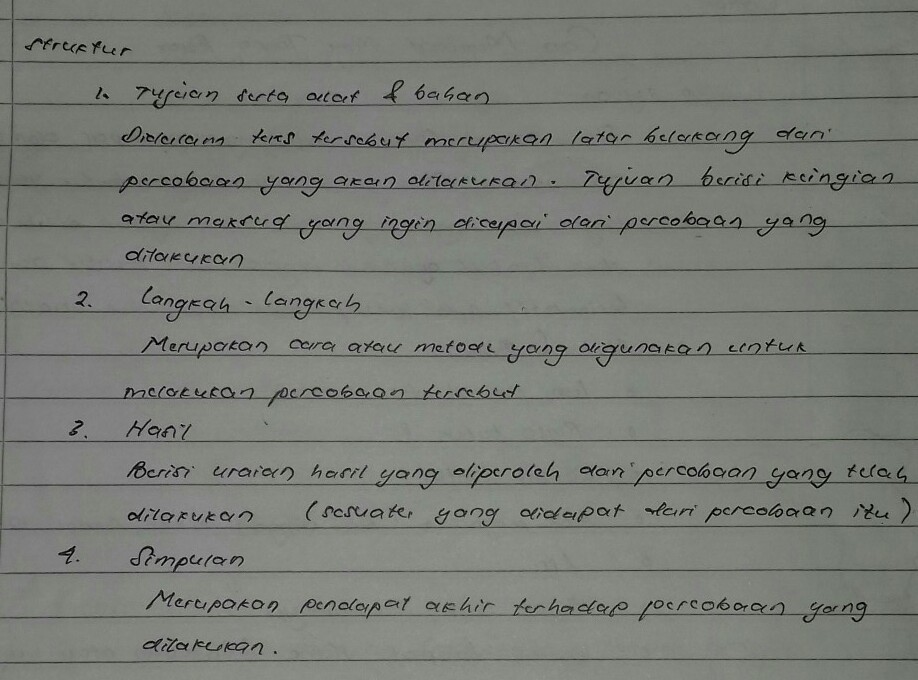 Struktur
1. Tujuan serta alat & bahan
Didalam teks tersebut merupakan latar belakang dari
percobaan yang akan dilakukan. Tujuan berisi keingian
atau maksud yang ingin dicapai dari percobaan yang
dilakukan
2. Langkah - langkah
Merupakan cara atau metode yang digunakan untuk
melakukan percobaan tersebut
3. Hasil
Berisi uraian hasil yang diperoleh dari percobaan yang telah
dilakukan (sesuatu yang didapat dari percobaan itu)
4. Simpulan
Merupakan pendapat akhir terhadap percobaan yang
dilakukan.